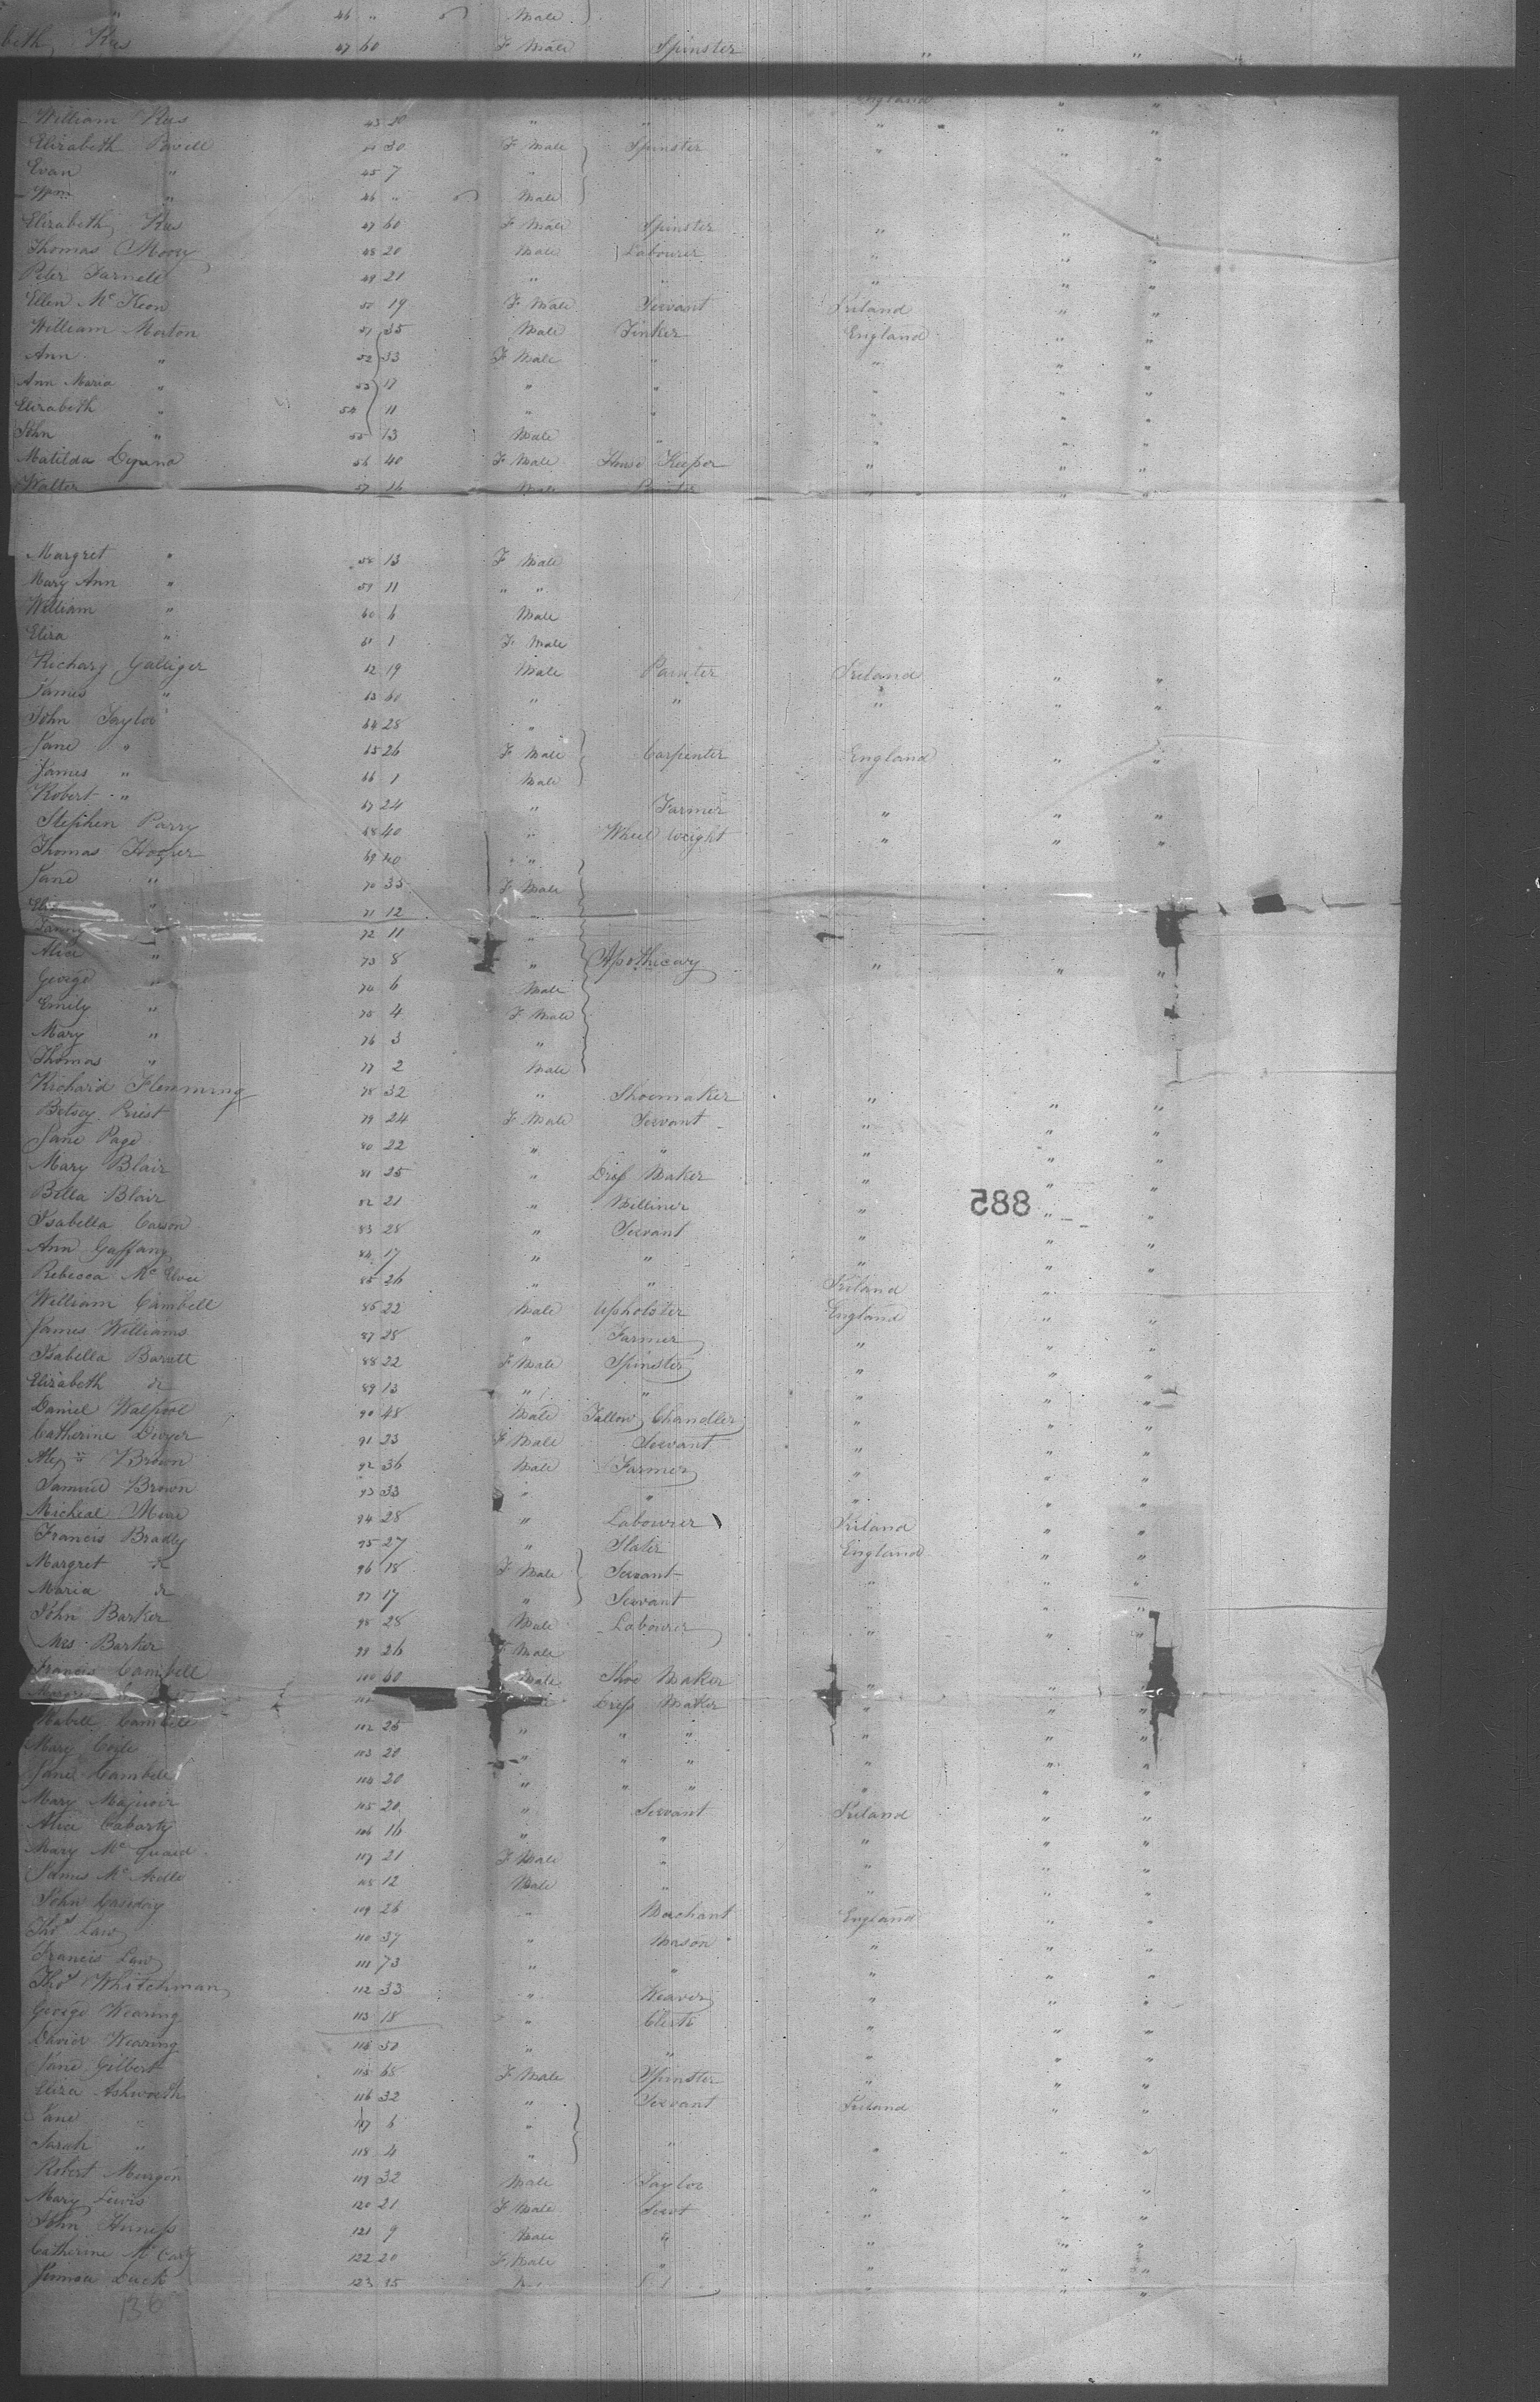 46 " Male
beth Rees 47 60 F Male Spinster " "
England " "
William Rees 43 20 " " " " "
Elizabeth Powell 44 30 F Male Spinster " " "
Evan " 45 7 "
Wm " 46 " Male
Elizabeth Rees 47 60 F Male Spinster " " "
Thomas Moory 48 20 Male Labourer " " "
Peter Farnell 49 21 " " " " "
Ellen Mc Keon 50 19 F Male Servant Ireland " "
William Morton 51 35 Male Tinker England " "
Ann " 52 33 F Male " " " "
Ann Maria " 53 17 " " " " "
Elizabeth " 54 11 " " " " "
John " 55 13 Male " " " "
Matilda 56 40 F Male House Keeper " " "
Walter 57 16 Male Painter " " "
Margret " 58 13 F Male
Mary Ann " 59 11 " "
William " 60 6 Male
Eliza " 61 1 F Male
Richary Galliger 62 19 Male Painter Ireland " "
James " 63 60 " " " " "
John Taylor 64 28 "
Jane " 65 26 F Male Carpenter England " "
James " 66 1 Male
Robert " 67 24 " Farmer " " "
Stephen Parry 68 40 " Wheel weight " " "
Thomas Hooper 69 40 " "
Jane " 70 35 F Male
" 71 12 "
Fanny " 72 11 "
Alice " 73 8 " Apothicary " " "
George " 74 6 Male
Emily " 75 4 F Male
Mary " 76 3 "
Thomas " 77 2 Male
Richard Flemming 78 32 " Shoemaker " " "
Betsey Priest 79 24 F Male Servant " " "
Jane Page 80 22 " " " " "
Mary Blair 81 25 " Dress Maker " " "
Bella Blair 82 21 " Milliner " " "
885
Isabella Carson 83 28 " Servant " " "
Ann Gaffany 84 17 " " " " "
Rebecca Mc 85 26 " " Ireland " "
William Cambell 86 22 Male Upholster England " "
James Williams 87 28 " Farmer " " "
Isabella Barett 88 22 F Male Spinster " " "
Elizabeth do 89 13 " " " " "
Daniel Walpool 90 48 Male Tallow Chandler " " "
Catherine Dwyer 91 23 F Male Servant " " "
Alexr Brown 92 36 Male Farmer " " "
Samuel Brown 93 33 " " " " "
Micheal Mure 94 28 " Labourer Ireland " "
Francis Bradly 95 27 " Slater England " "
Margret do 96 18 F Male Servant " " "
Maria do 97 17 " Servant " " "
John Barker 98 28 Male Labourer " " "
Mrs Barker 99 26 F Male
Francis Cambell 100 60 Male Shoe Maker " " "
Dress Maker " " "
Mabell Cambell 102 25 " " " " " "
Mary Coyle 103 20 " " " " " "
Jane Cambell 104 20 " " " " " "
Mary 105 20 " Servant Ireland " "
Alice Cabarty 106 16 " " " " "
Mary Mc Quaid 107 21 F Male " " " "
James Mc 108 12 Male " " " "
John Cassidy 109 26 " Merchant England " "
Thos Law 110 37 " Mason " " "
Francis Law 111 73 " " " " "
Thos Whitchman 112 33 " Weaver " " "
George Wearing 113 18 " Clerk " " "
David Wearing 114 50 " " " " "
Jane Gilbert 115 68 F Male Spinster " " "
Eliza Ashworth 116 32 " Servant Ireland " "
Jane " 117 6 "
Sarah " 118 4 " " " " "
Robert Morgon 119 32 Male Taylor " " "
Mary Lewis 120 21 F Male Servt " " "
John 121 9 Male " " " "
Catherine Mc Carty 122 20 F Male " " " "
Duck 123 35 " " "
136